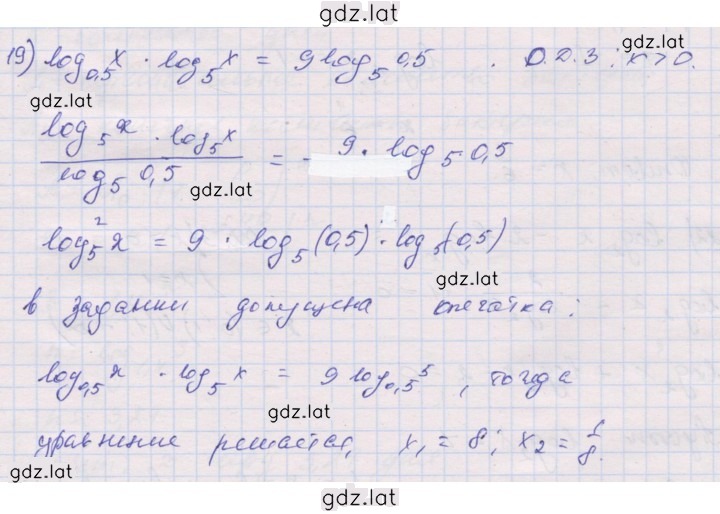 gdz.lat
19) log₀,₅ x · log₅ x = 9 log₅ 0,5 . О.Д.З.: x > 0.
gdz.lat
gdz.lat
(log₅ x · log₅ x) / (log₅ 0,5) = - 9 · log₅ 0,5
gdz.lat
log₅² x = 9 · log₅ (0,5) · log₅ (0,5)
gdz.lat
в задании допущена опечатка:
log₀,₅ x · log₅ x = 9 log₀,₅ 5 , тогда
gdz.lat
уравнение решается, x₁ = 8; x₂ = 1/8.
gdz.lat
gdz.lat